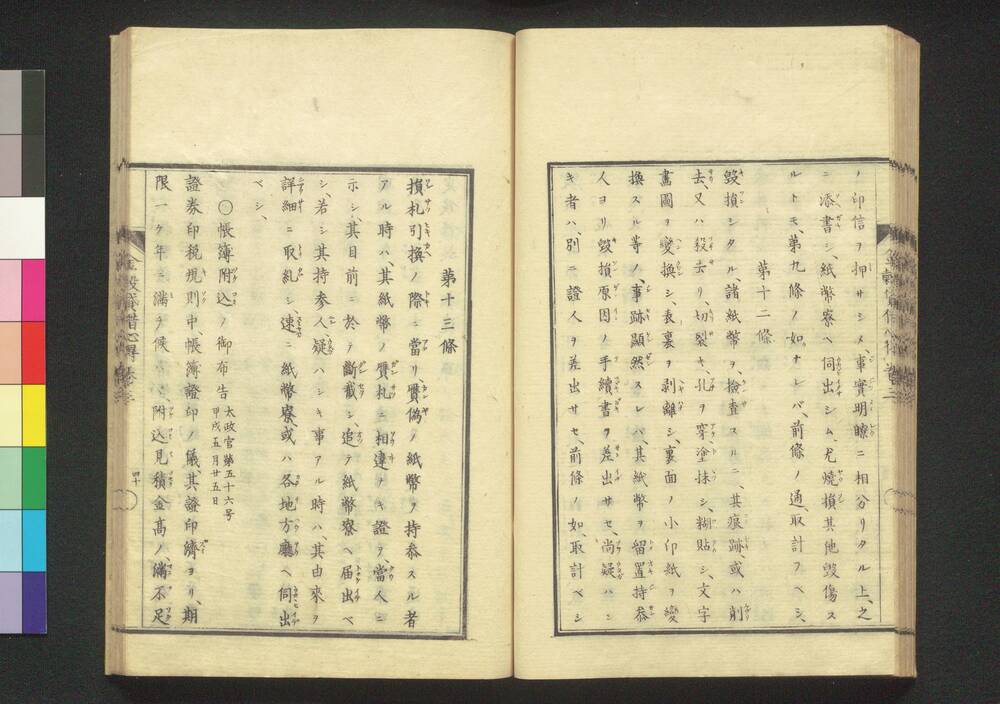 ノ印信ヲ押サシメ事實明瞭ニ相分リタル上、之
ニ添書シ、紙幣寮ヘ伺出シム、尤燒損其他毀傷ス
ルトモ、第九條ノ如クナレバ、前條ノ通取計フベシ、
第十二條
毀損シタル諸紙幣ヲ檢査スルニ、其痕跡、或ハ削
去、又ハ殺去リ、切裂キ、孔ヲ穿、塗抹シ、糊貼シ、文字
畵圖ヲ變換シ、表裏ヲ剥離シ、裏面ノ小印紙ヲ變
換スル等ノ事跡顯然スレバ、其紙幣ヲ留置持參
人ヨリ毀損原因ノ手續書ヲ差出サセ、尚疑ハシ
キ者ハ、別ニ證人ヲ差出サセ、前條ノ如、取計ベシ
第十三條
損札引換ノ際ニ當リ、贋偽ノ紙幣ヲ持參スル者
アル時ハ、其紙幣ノ贋札ニ相違ナキ證ヲ、當人ニ
示シ、其目前ニ於テ斷截シ、追テ紙幣寮ヘ届出ベ
シ、若シ其持參人疑ハシキ事アル時ハ、其由來ヲ
詳細ニ取糺シ、速ニ紙幣寮、或ハ各地方廳ヘ伺出
ベシ、
○帳簿附込ノ御布告 太政官第五十六号
甲戌五月廿五日
證券印税規則中、帳簿證印ノ儀、其證印濟ヨリ、期
限一ケ年ニ滿チ候ハヾ、附込見積金高ノ、滿不足
金穀貸借心得 巻二
四十